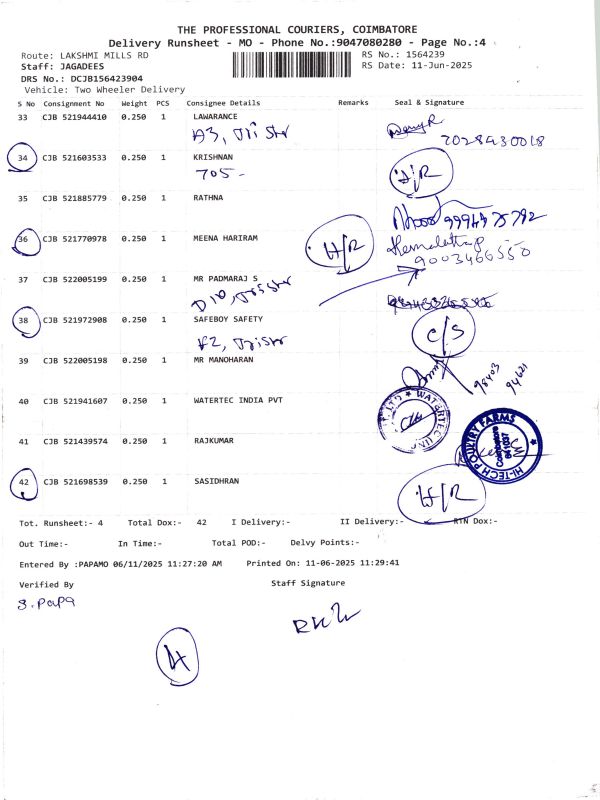 THE PROFESSIONAL COURIERS, COIMBATORE
Delivery Runsheet - MO - Phone No.:9047080280 - Page No.:4
Route: LAKSHMI MILLS RD
RS No.: 1564239
Staff: JAGADEES
RS Date: 11-Jun-2025
DRS No.: DCJB156423904
Vehicle: Two Wheeler Delivery
S No Consignment No Weight PCS Consignee Details Remarks Seal & Signature
33 CJB 521944410 0.250 1 LAWARANCE
A3,
34 CJB 521603533 0.250 1 KRISHNAN
705 - H/R
35 CJB 521885779 0.250 1 RATHNA
36 CJB 521770978 0.250 1 MEENA HARIRAM H/R
9003466550
37 CJB 522005199 0.250 1 MR PADMARAJ S
D10,
38 CJB 521972908 0.250 1 SAFEBOY SAFETY
C/S
39 CJB 522005198 0.250 1 MR MANOHARAN
98403
94621
40 CJB 521941607 0.250 1 WATERTEC INDIA PVT
WATERTEC
41 CJB 521439574 0.250 1 RAJKUMAR
HI-TECH POULTRY FARMS
Coimbatore
641037
42 CJB 521698539 0.250 1 SASIDHRAN H/R
Tot. Runsheet:- 4 Total Dox:- 42 I Delivery:- II Delivery:- RTN Dox:-
Out Time:- In Time:- Total POD:- Delvy Points:-
Entered By :PAPAMO 06/11/2025 11:27:20 AM Printed On: 11-06-2025 11:29:41
Verified By Staff Signature
S. Papa